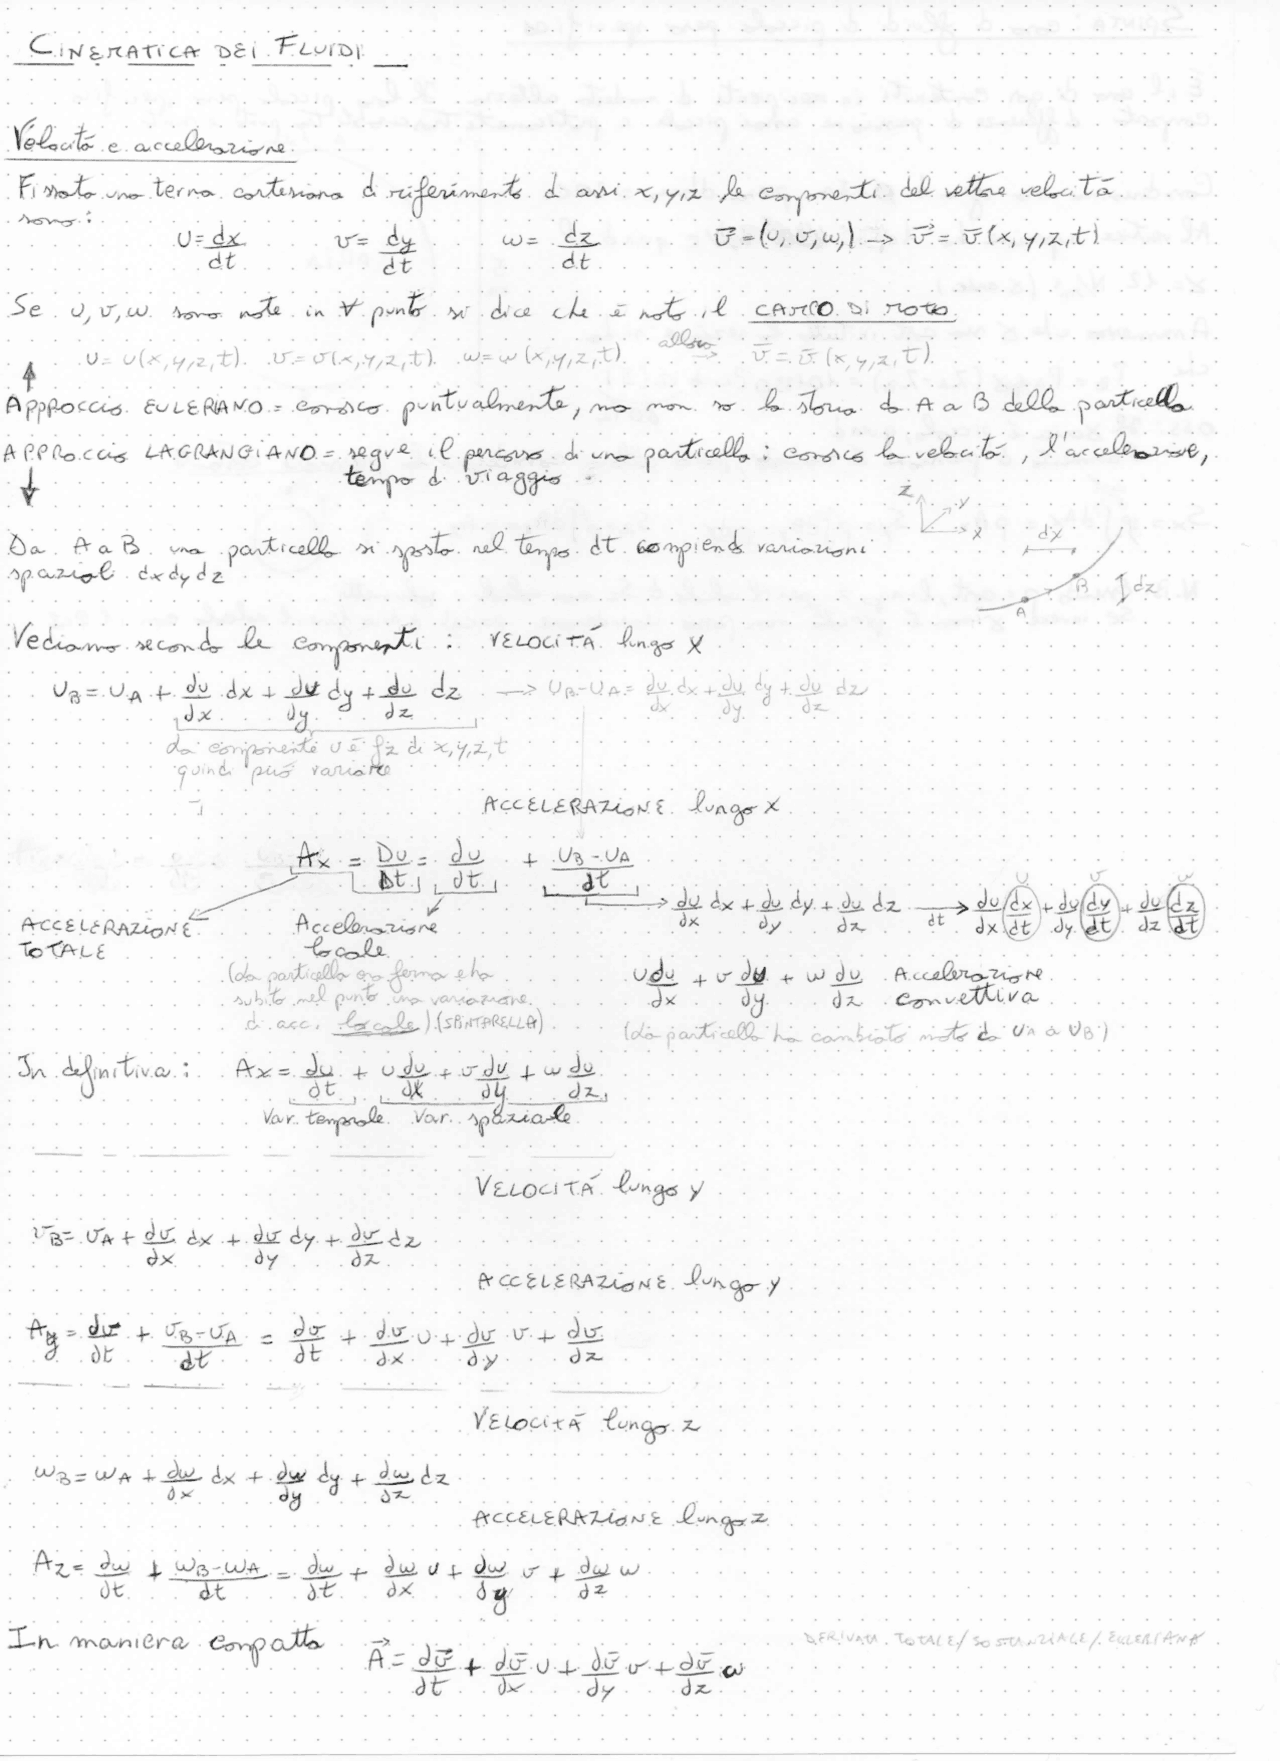 CINEMATICA DEI FLUIDI
Velocità e accelerazione
Fissata una terna cartesiana di riferimento di assi x,y,z le componenti del vettore velocità
sono:
u = dx/dt v = dy/dt w = dz/dt v⃗ = (u, v, w,) → v⃗ = v̄(x,y,z,t)
Se u,v,w sono note in ∀ punto si dice che è noto il CAMPO DI MOTO
u = u(x,y,z,t) v = v(x,y,z,t) w = w(x,y,z,t) allora → v̄ = v̄(x,y,z,t)
APPROCCIO EULERIANO = conosco puntualmente, ma non so la storia da A a B della particella
APPROCCIO LAGRANGIANO = segue il percorso di una particella: conosco la velocità, l'accelerazione,
tempo di viaggio
z y x
dx
B
dz
A
Da A a B una particella si sposta nel tempo dt compiendo variazioni
spaziali dx dy dz
Vediamo secondo le componenti: VELOCITÁ lungo x
u_B = u_A + ∂u/∂x dx + ∂u/∂y dy + ∂u/∂z dz → u_B - u_A = ∂u/∂x dx + ∂u/∂y dy + ∂u/∂z dz
la componente u è fz di x,y,z,t
quindi può variare
ACCELERAZIONE lungo x
A_x = Du/Dt = ∂u/∂t + (u_B - u_A)/dt
→ ∂u/∂x dx + ∂u/∂y dy + ∂u/∂z dz →dt ∂u/∂x dx/dt + ∂u/∂y dy/dt + ∂u/∂z dz/dt
u v w
ACCELERAZIONE
TOTALE
Accelerazione
locale
(la particella era ferma e ha
subito nel punto una variazione
di acc. locale) (SPINTARELLA)
u ∂u/∂x + v ∂u/∂y + w ∂u/∂z Accelerazione
convettiva
(la particella ha cambiato moto da u_A a u_B)
In definitiva: A_x = ∂u/∂t + u ∂u/∂x + v ∂u/∂y + w ∂u/∂z
Var. temporale Var. spaziale
VELOCITÁ lungo y
v_B = v_A + ∂v/∂x dx + ∂v/∂y dy + ∂v/∂z dz
ACCELERAZIONE lungo y
A_y = ∂v/∂t + (v_B - v_A)/dt = ∂v/∂t + ∂v/∂x u + ∂v/∂y v + ∂v/∂z
VELOCITÁ lungo z
w_B = w_A + ∂w/∂x dx + ∂w/∂y dy + ∂w/∂z dz
ACCELERAZIONE lungo z
A_z = ∂w/∂t + (w_B - w_A)/dt = ∂w/∂t + ∂w/∂x u + ∂w/∂y v + ∂w/∂z w
In maniera compatta A⃗ = ∂v⃗/∂t + ∂v̄/∂x u + ∂v̄/∂y v + ∂v̄/∂z w
DERIVATA TOTALE/SOSTANZIALE/EULERIANA